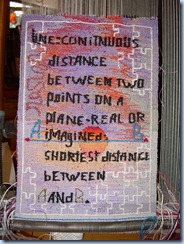 LINE=CONTINUOUS
DISTANCE
BETWEEN TWO
POINTS ON A
PLANE-REAL OR
A IMAGINED. B
SHORTEST DISTANCE
BETWEEN
A AND B.